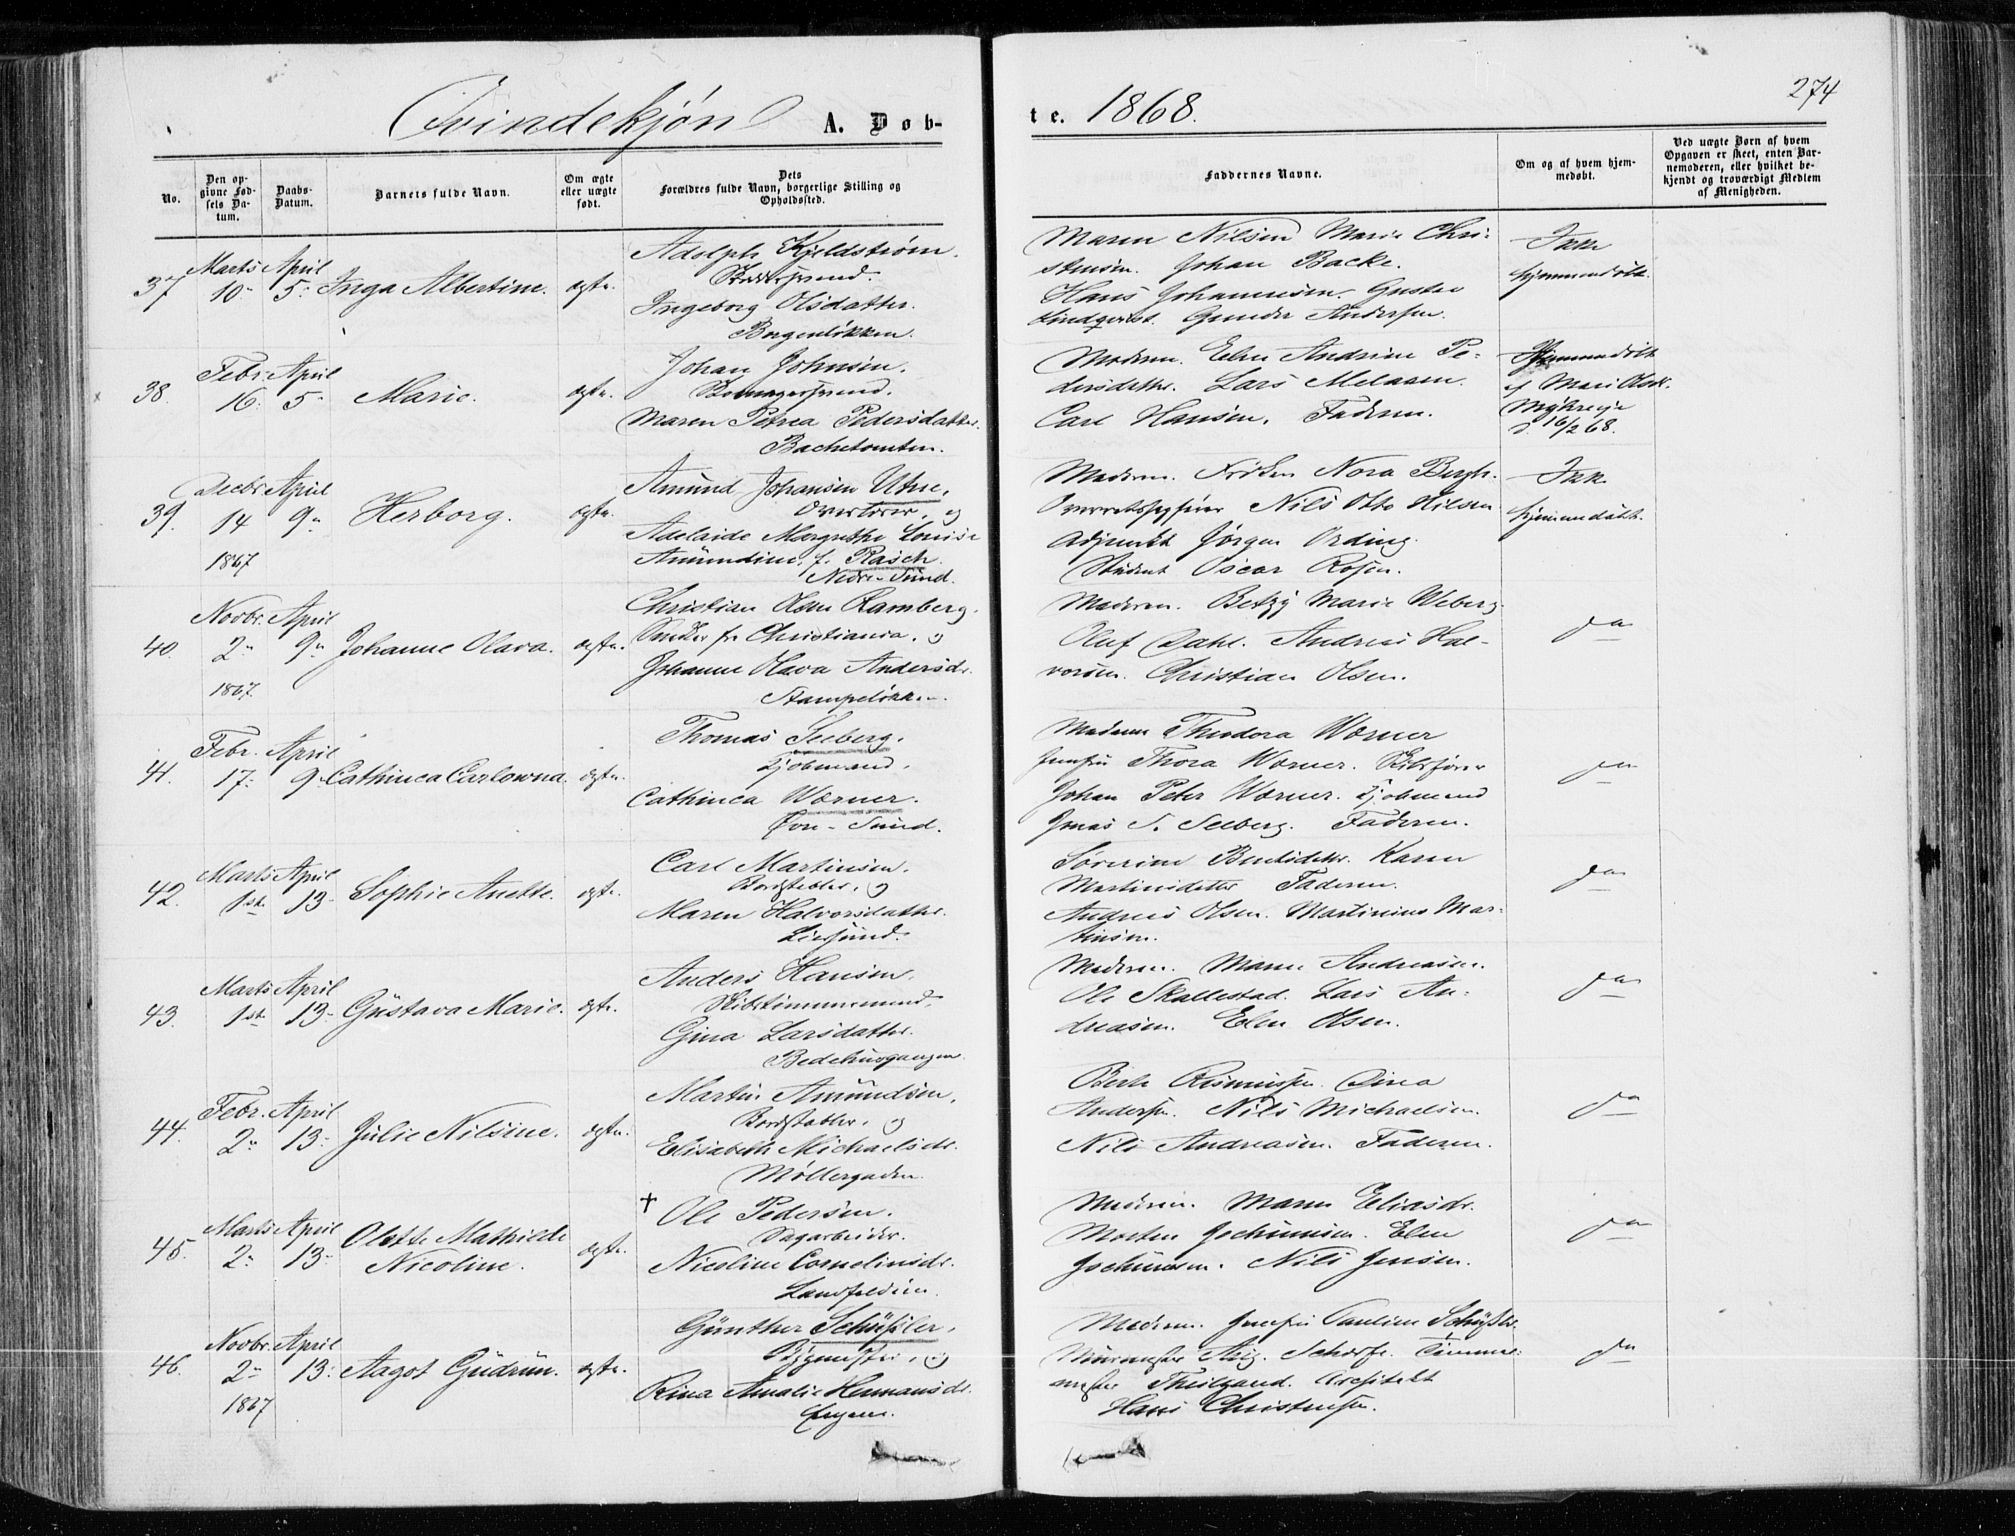 274
Qvindekjøn A. Døb-
te. 1868.
No.
Den op-
givne Fød-
sels Da-
tum.
Daabs-
Datum.
Barnets fulde Navn.
Om ægte
eller uægte
født.
Dets
Forældres fulde Navn, borgerlige Stilling og
Opholdssted.
Faddernes Navne.
Om og af hvem hjem-
medøbt.
Ved uægte Børn af hvem
Opgaven er skeet, enten Bar-
nemoderen, eller hvilket be-
kjendt og troværdigt Medlem
af Menigheden.
37
Marts
10
April
5
Inga Albertine.
ægte.
Adolph Kjeldstrøm.
Ingeborg Olsdatter.
Borgenløkken.
Maren Nilsen Marie Chri-
stensen. Johan Backe.
Hans Johannesen. Gustav
Lindqvist. Gunder Andersen.
Ikke
hjemmedøbt.
38.
Febr.
16.
April
5
Marie.
ægte.
Johan Johnsen.
Maren Petrea Pedersdatter.
Bachetomten.
Moderen. Elen Andrine Pe-
dersdatter. Lars Melaaen.
Carl Hansen. Faderen.
Hjemmedøbt
af Mari Olsdr.
d. 16/2 68.
39.
Decbr.
14
1867
April
9
Herborg.
ægte.
Amund Johansen Utne,
Overlærer, og
Adelaide Margrethe Louise
Amundine, f. Rasch.
Nedre-Sund.
Moderen. Frøken Nora Bergh.
Overretssagfører Nils Otto Nilsen
Adjunkt Jørgen Ording.
Student Oscar Rosen.
Ikke
hjemmedøbt.
40.
Novbr.
2
1867.
April
9
Johanne Olava.
ægte.
Christian Olsen Ramberg.
Snedker fra Christiania, og
Johanne Olava Andersdr.
Stampeløkken.
Moderen. Betzy Marie Weberg.
Oluf Dahl. Andreas Hal-
vorsen. Christian Olsen.
do
41.
Febr.
17.
April
9
Cathinca Carlowna.
ægte.
Thomas Seeberg.
Kjøbmand.
Cathinca Wærner.
Øvre-Sund.
Madame Theodora Wærner
Jomfru Thora Wærner. Skibsfører
Johan Peter Wærner. Kjøbmand
Jonas S. Seeberg. Faderen.
do
42.
Marts
1ste
April
13
Sophie Anette.
ægte.
Carl Martinsen.
Bordstabler, og
Maren Halvorsdatter.
Severine Berntsdatter. Karen
Martinsdatter Faderen.
Andreas Olsen. Martinius Mar-
tinsen.
do
43.
Marts
1ste
April
13
Gustava Marie.
ægte.
Anders Hansen.
Skibstømmermand.
Gina Larsdatter.
Bedehusgangen
Moderen. Maren Andreasen.
Ole Skallestad. Lars An-
dreasen. Elen Olsen.
do
44.
Febr.
2
April
13
Julie Nilsine.
ægte.
Martin Amundsen,
Bordstabler, og
Elisabeth Michaelsdr.
Møllergaden.
Berthe Rasmussen. Dina
Andersen. Nils Michaelsen.
Nils Andreasen. Faderen.
do
45.
Marts
2
April
13
Olette Mathilde
Nicoline.
ægte.
† Ole Pedersen.
Sagarbeider.
Nicoline Corneliusdr.
Landfaldøien.
Moderen. Maren Eliasdr.
Morten Jochumsen. Elen
Jochumsen. Nils Jensen.
do
46.
Novbr.
2
1867
April
13
Aagot Gudrun.
ægte.
Günther Schüssler,
Bygmester, og
Rina Amalie Hermansdr.
Engene.
Moderen. Jomfru Pauline Schüssler.
Murmester Aug. Scharfe. Tømmer-
mester Theilgaard. Arkitekt
Hans Christensen.
do